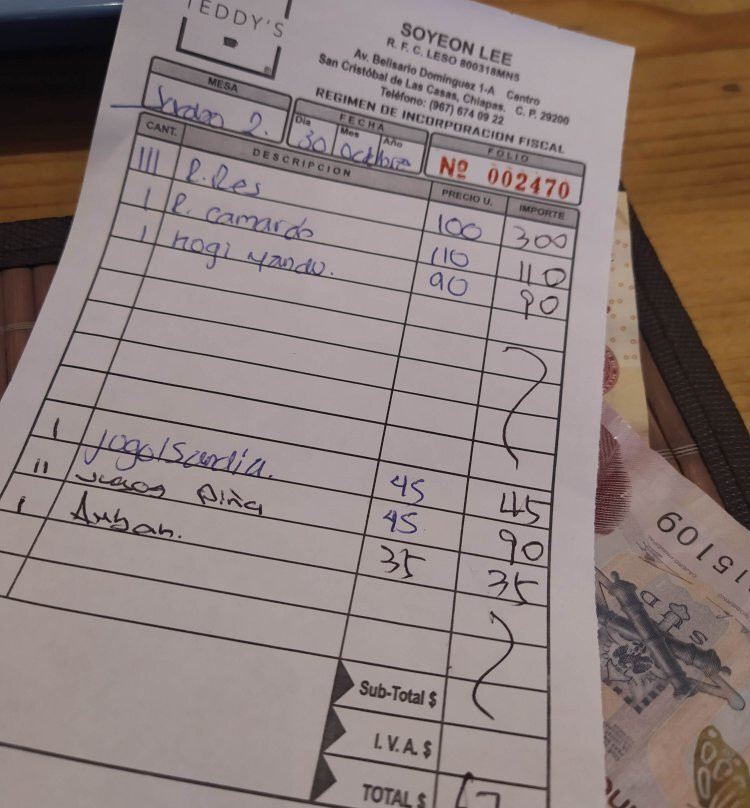 TEDDY'S
SOYEON LEE
R. F. C. LESO 800318MN5
Av. Belisario Domínguez 1-A Centro
San Cristóbal de Las Casas, Chiapas. C. P. 29200
Teléfono: (967) 674 09 22
REGIMEN DE INCORPORACION FISCAL
MESA FECHA FOLIO
2. Día 30 Mes Octubre Año Nº 002470
CANT. DESCRIPCION PRECIO U. IMPORTE
III R. Res 100 300
I R. camardo 110 110
I 90 90
I Jogo/Sandía. 45 45
II Piña 45 90
I 35 35
Sub-Total $
I. V. A. $
TOTAL $
15109